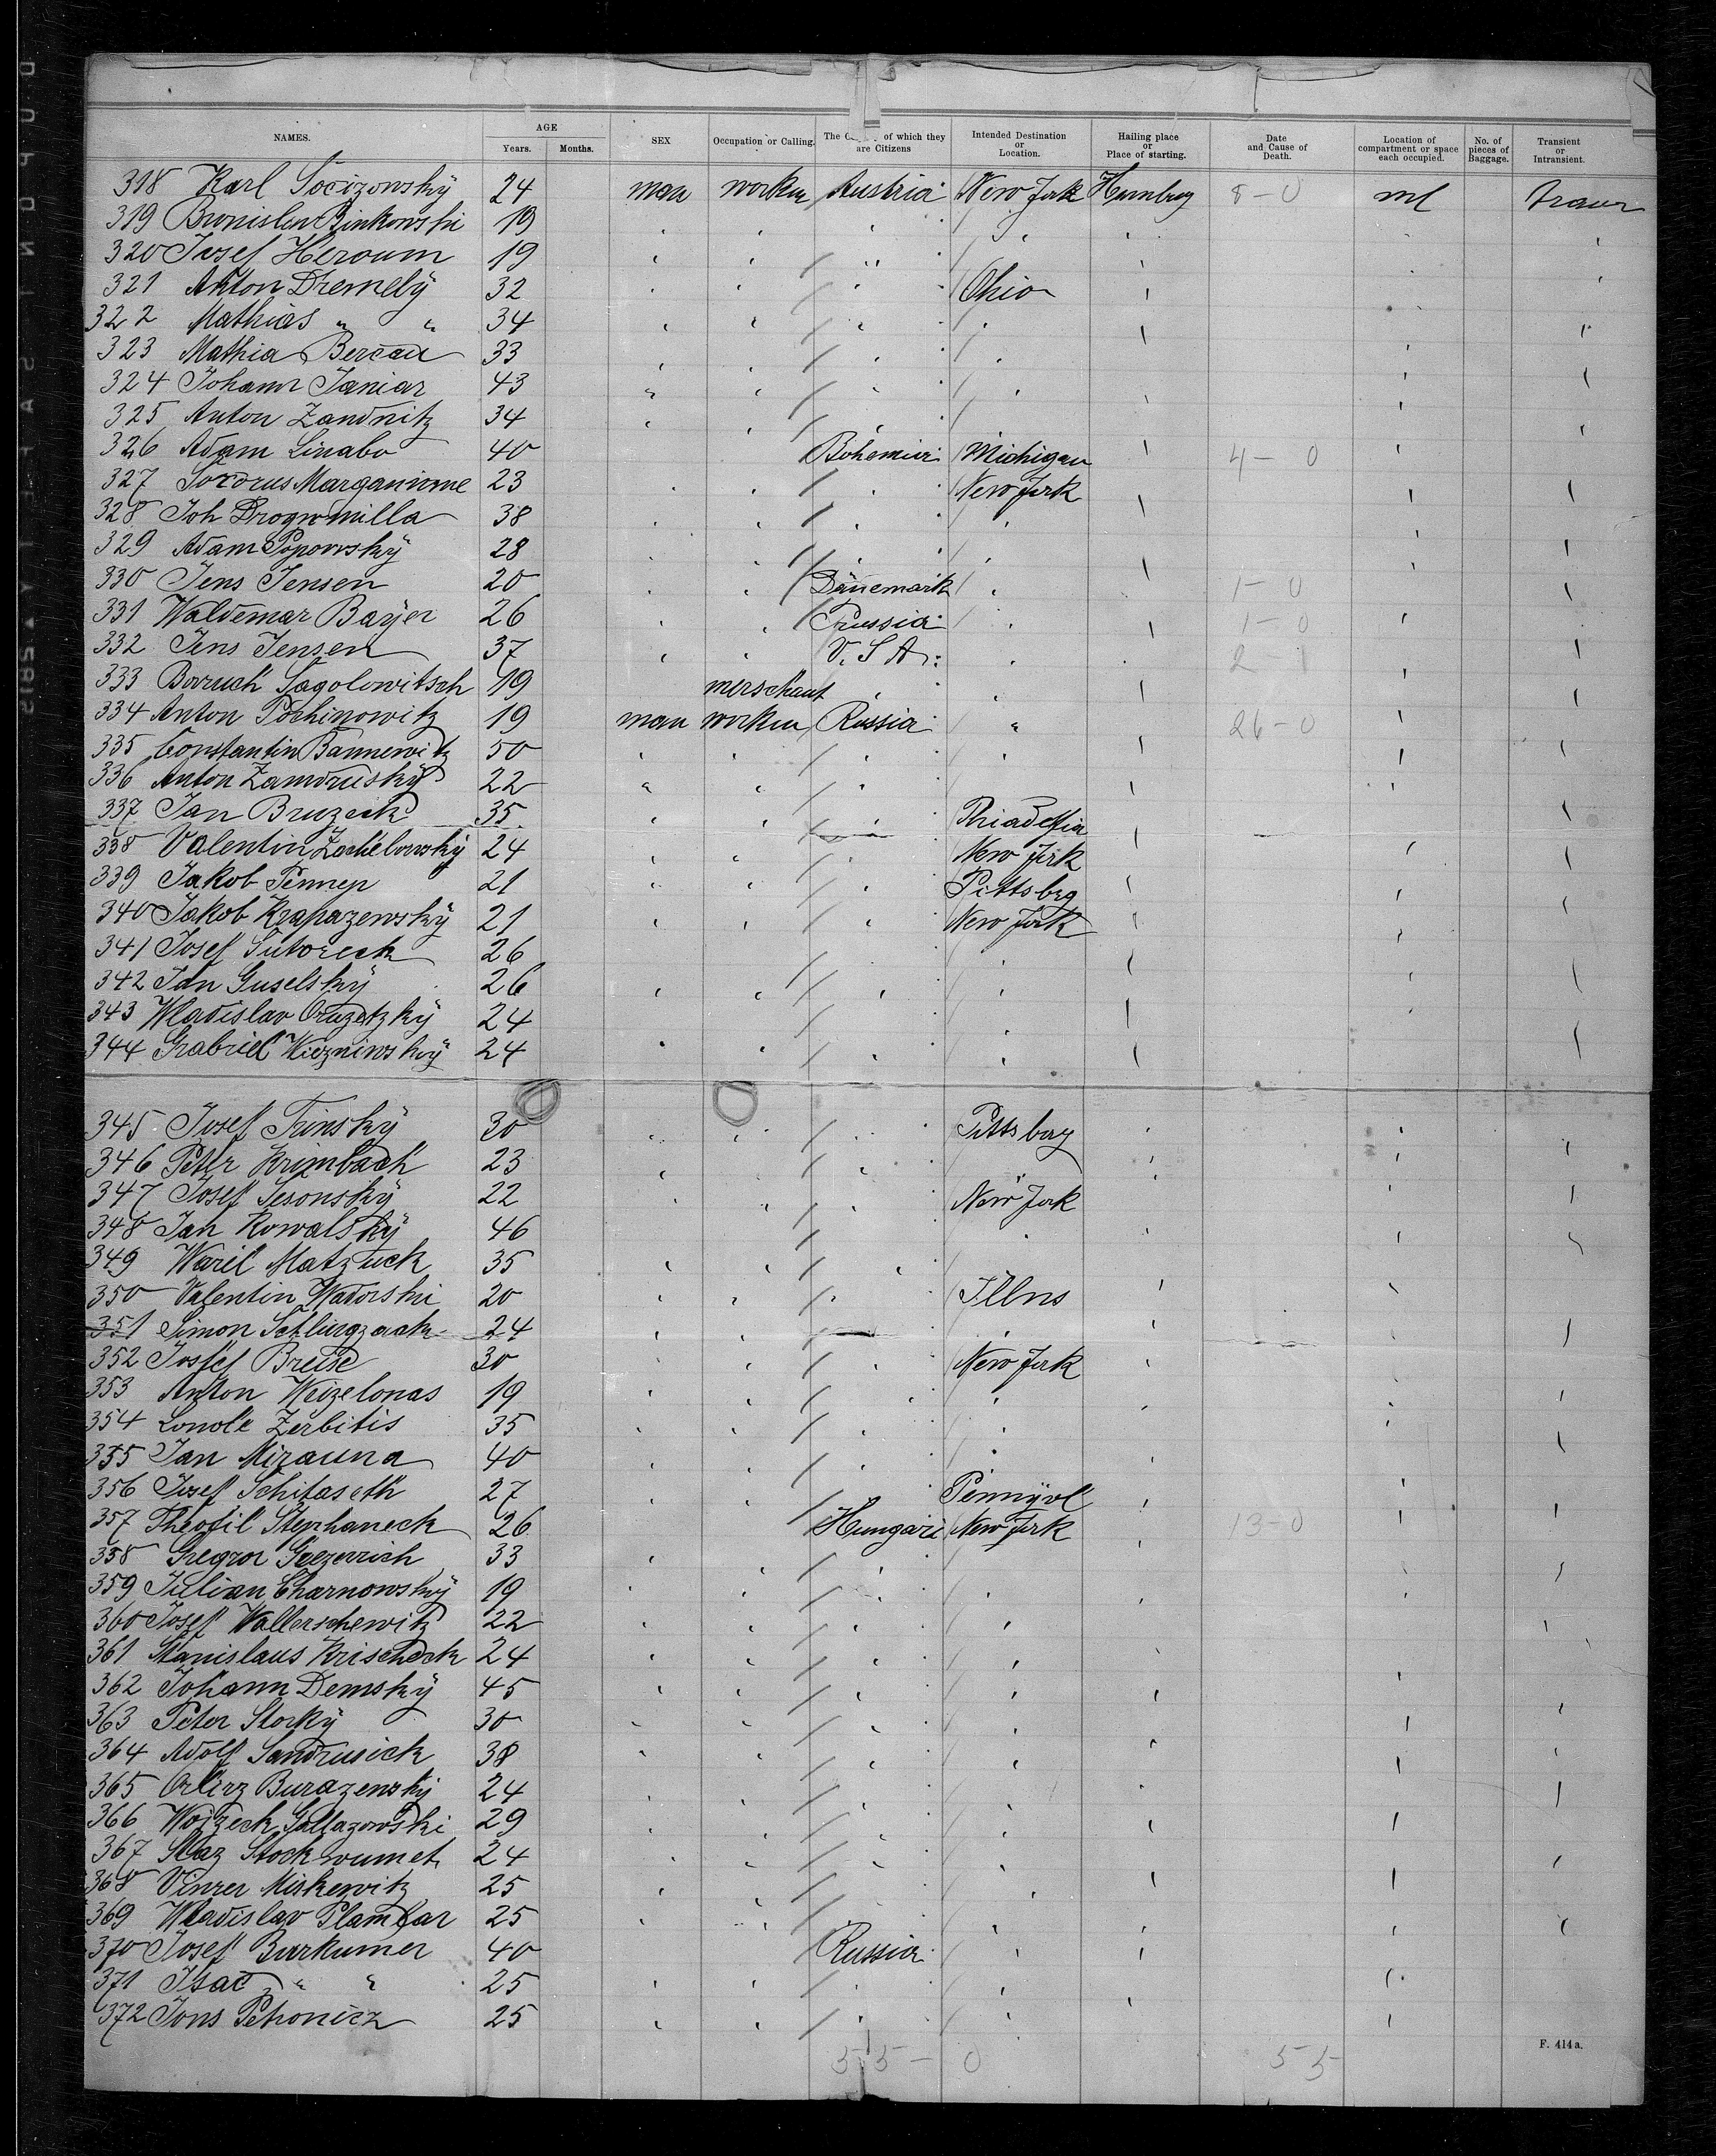 NAMES. AGE Years. Months. SEX Occupation or Calling. The of which they are Citizens Intended Destination or Location. Hailing place or Place of starting. Date and Cause of Death. Location of compartment or space each occupied. No. of pieces of Baggage. Transient or Intransient.
318 Karl Socizowsky 24 man worker Austria New Jork Hamburg 8 - 0
319 Bronislen Binkowski 19
320 Josef Heroum 19
321 Anton Dremely 32 Ohio
322 Mathias " " 34
323 Mathia Bercau 33
324 Johann Janiar 43
325 Anton Zandnitz 34
326 Adam Linabo 40 Bohemia Michigan 4 - 0
327 23 New Jork
328 Joh Drogowmilla 38
329 Adam Popowsky 28
330 Jens Jensen 20 Dänemark 1 - 0
331 Waldemar Bayer 26 Prussia 1 - 0
332 Jens Jensen 37 U. S A. 2 1
333 Boruch Sagolowitsch 19 merschant
334 Anton Pochinowitz 19 man worker Russia " 26 - 0
335 Constantin Bannewitz 50
336 Anton Zamdrusky 22
337 Jan Bruzeck 35 Phiadelfia
338 Valentin Zochelowsky 24 New Jork
339 Jakob Pennep 21 Pittsbrg
340 Jakob Krapazewsky 21 New Jork
341 Josef Sutoreck 26
342 Jan Guselsky 26
343 Wladislav Oruzetzky 24
344 Grabriel Wiezniwsky 24
345 Josef Trinsky 30 Pittsburg
346 Peter Krumbach 23
347 Josef Sesonsky 22 New Jork
348 Jan Kowalsky 46
349 Waril Matzuck 35
350 Valentin Watorski 20 Illns
351 Simon Schlurgzack 24
352 Josfef Breise 30 New Jork
353 Anton Weizelonas 19
354 Lonole Zerbitis 35
355 Jan Mizauna 40
356 Josef Schitaseth 27 Pennyvl
357 Theofil Stephaneck 26 Hungari New Jork 13 - 0
358 Gregror Grezerrich 33
359 Julian Charnowsky 19
360 Josef Wallerschewitz 22
361 Stanislaus Krischeck 24
362 Johann Demsky 45
363 Peter Storky 30
364 Adolf Sandrusick 38
365 Burazensky 24
366 Woizeck Gallazowski 29
367 Slaz Stockwumet 24
368 Vinzer Miskewitz 25
369 Wladislav Plambar 25
370 Josef Burkumer 40 Russia
371 Isac " " 25
372 Jons Petronicz 25
55 - 0 55
F. 414 a.